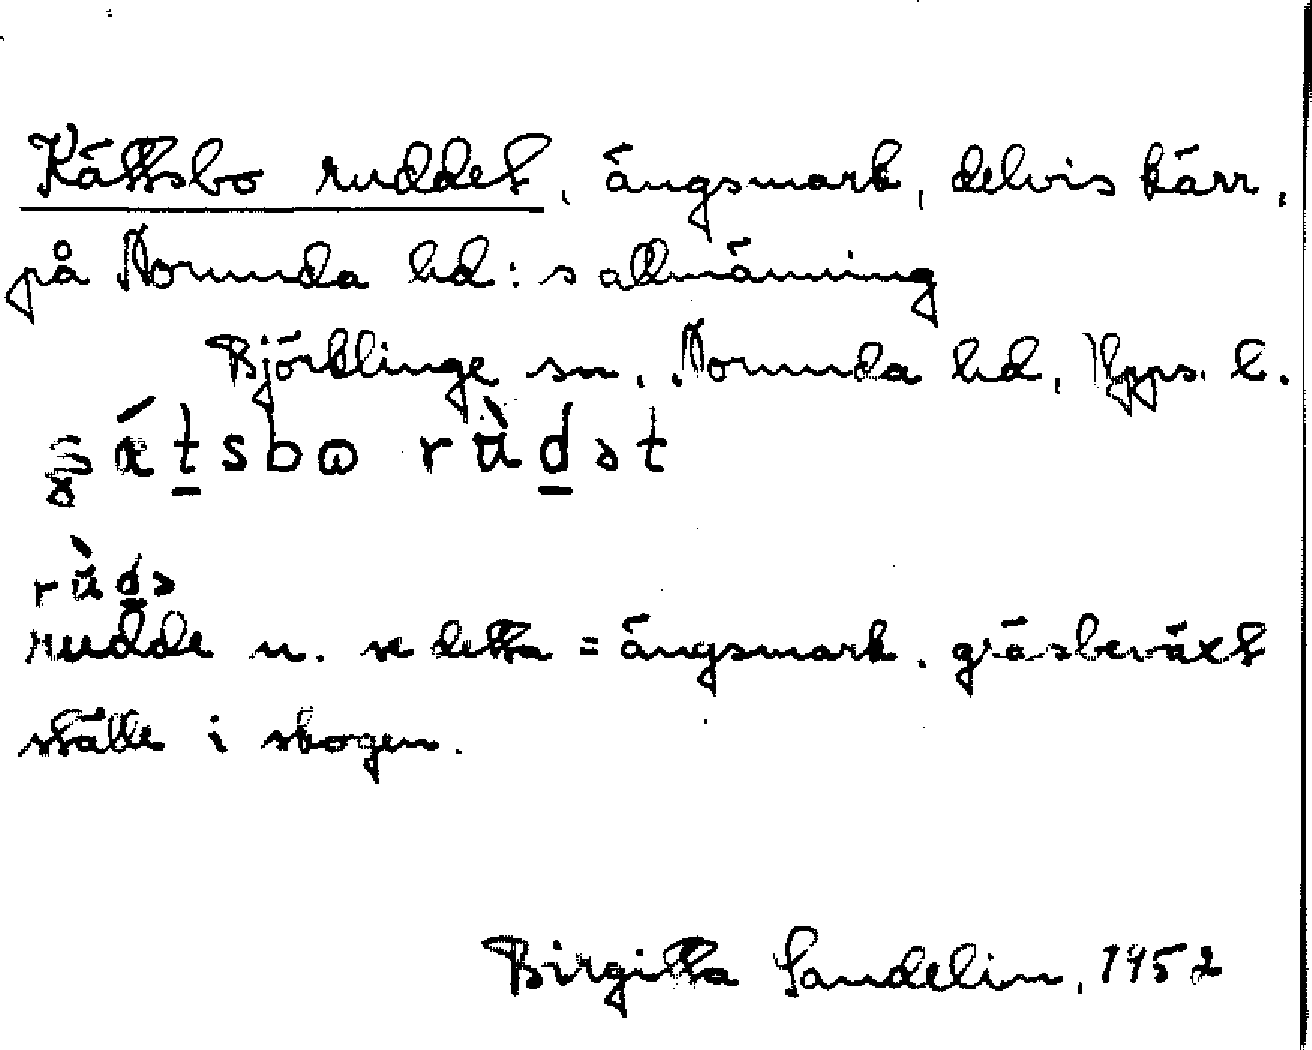 Kättsbo ruddet, ängsmark, delvis kärr,
på Norunda hd:s allmänning
Björklinge sn, Norunda hd, Upps. l.
rudde n. se detta = ängsmark. gräsbeväxt
ställe i skogen.
Birgitta Sandelin, 1952